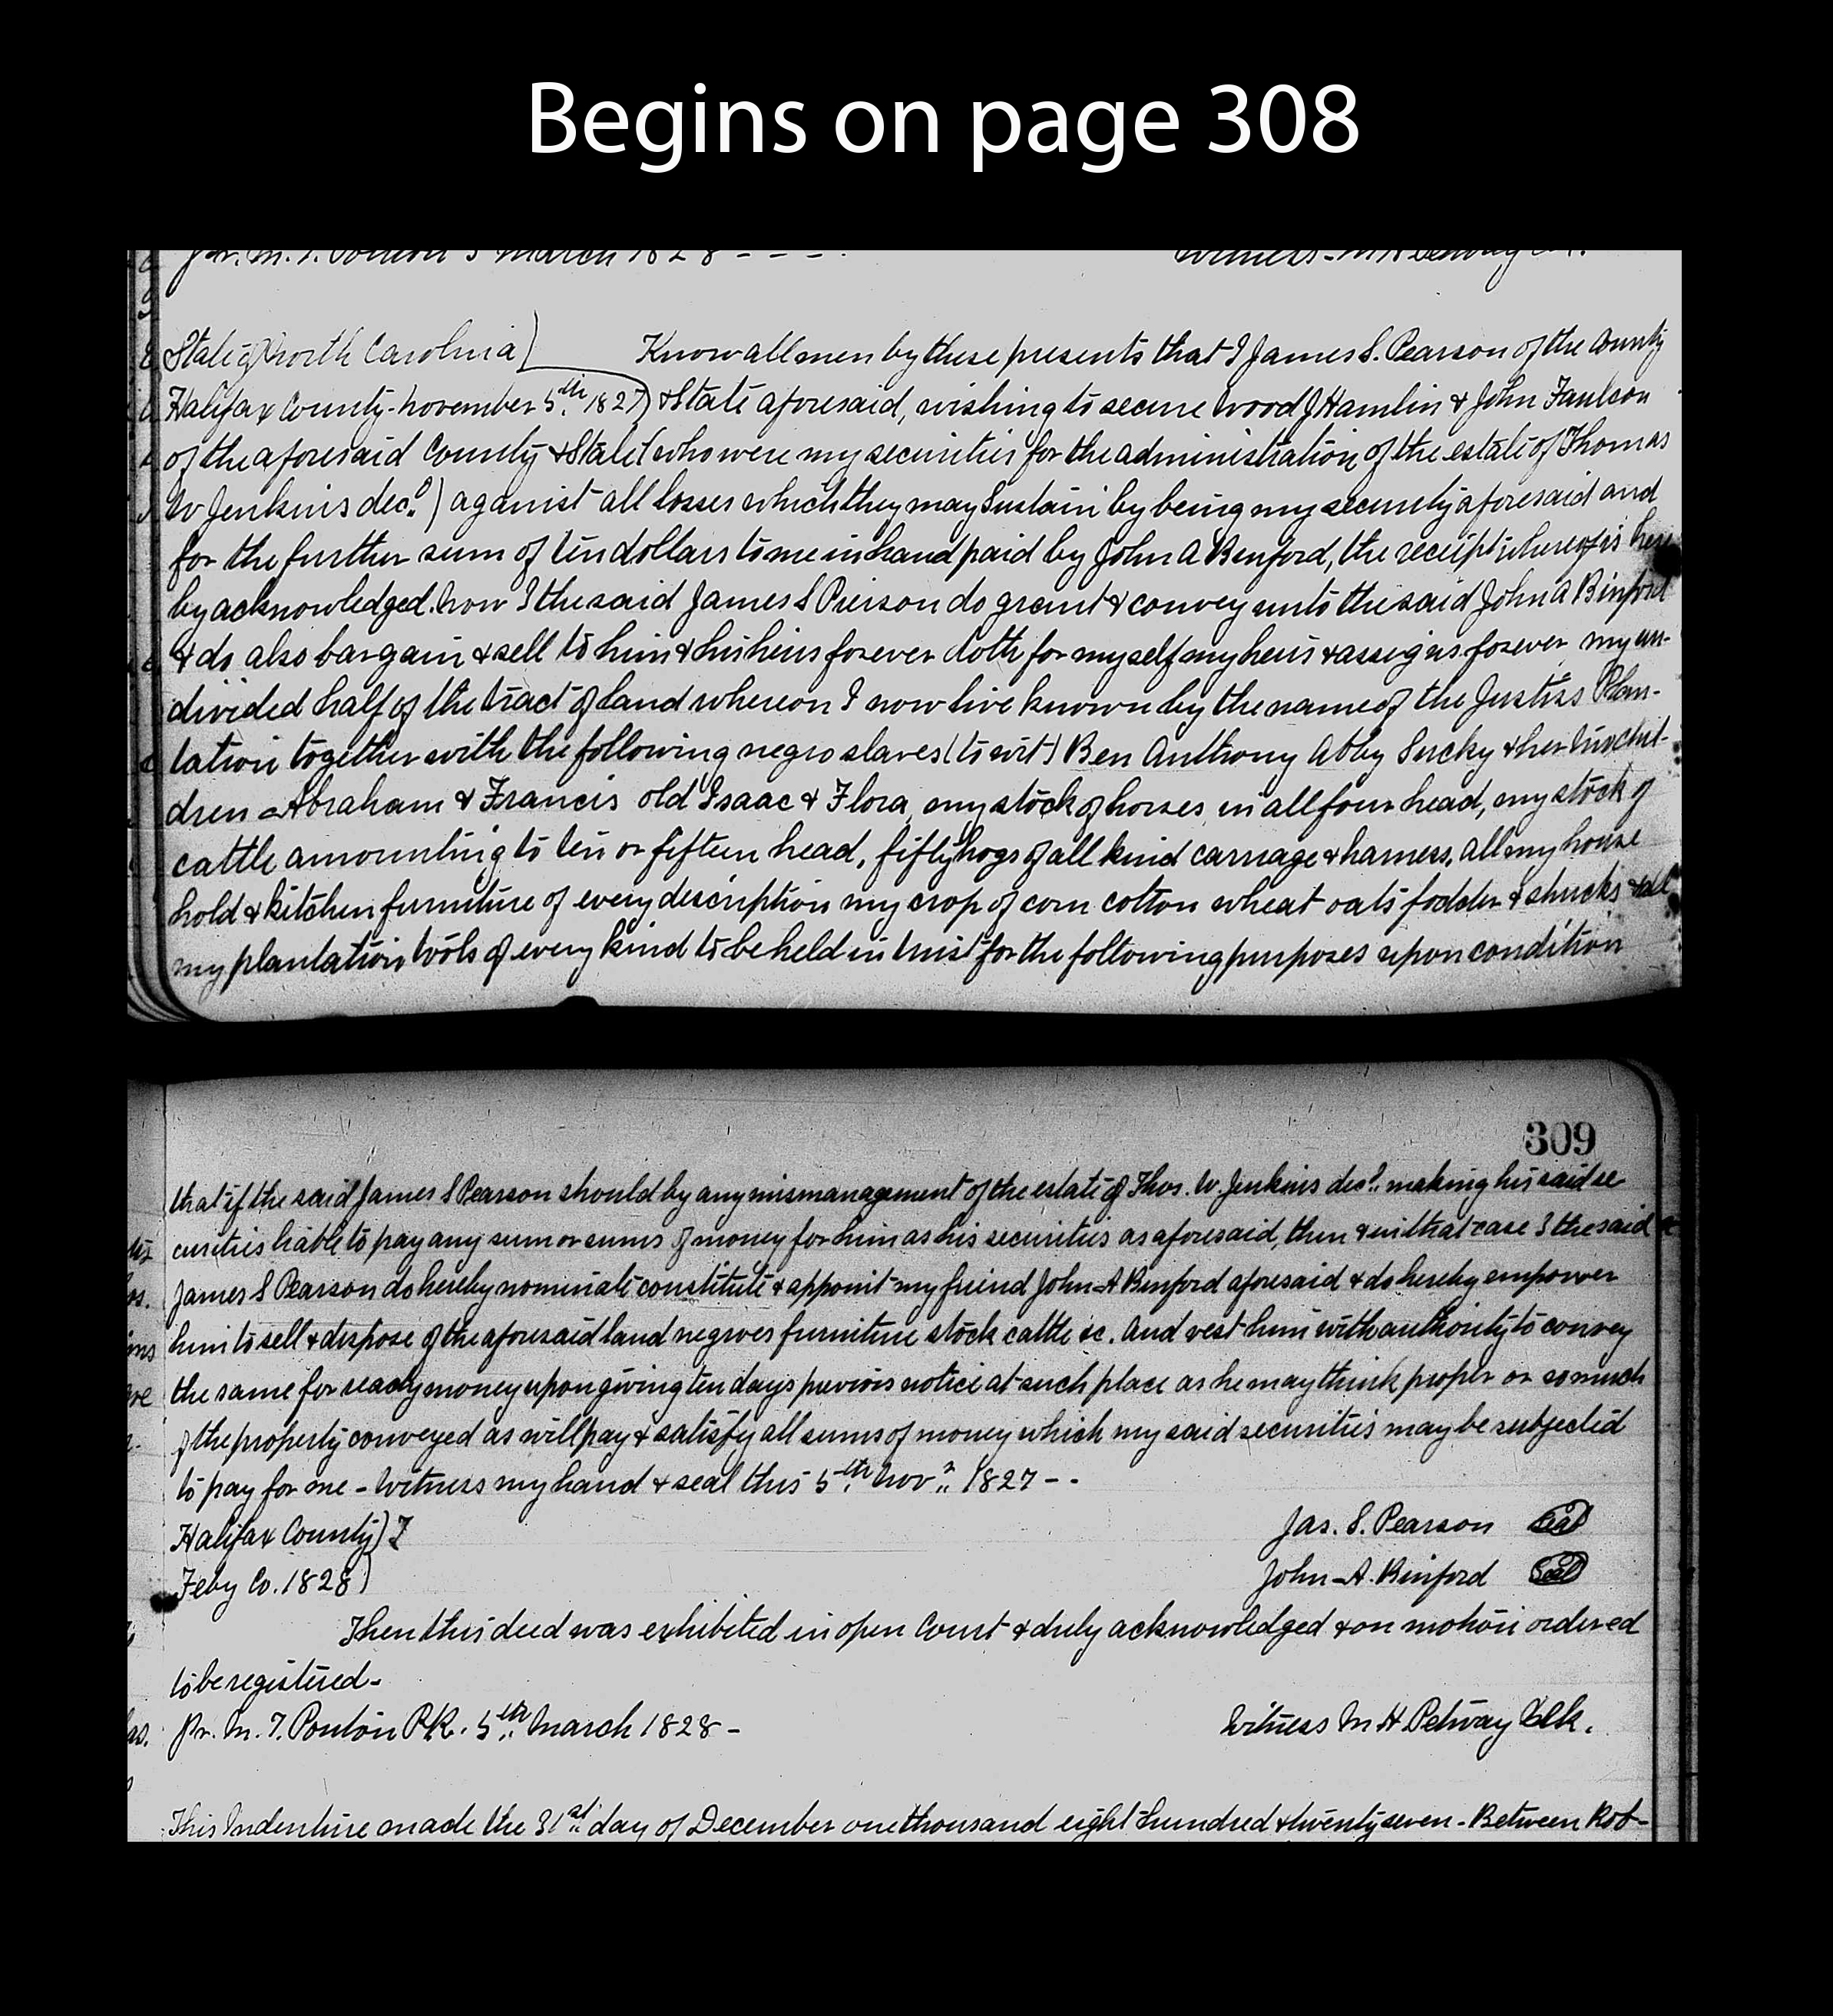 Begins on page 308
State of North Carolina) Know all men by these presents that I James S. Pearson of the County
Halifax County - November 5th., 1827) & State aforesaid, wishing to secure Wood J Hamlin & John Faulcon
of the aforesaid County & State (who were my securities for the administration of the estate of Thomas
W Jenkins decd.) aganist all losses which they may Sustain by being my security aforesaid and
for the further sum of ten dollars to me in hand paid by John A Benford, the receipt whereof is here
by acknowledged. Now I the said James S Pierson do grant & convey unto the said John A Binford
& do also bargain & sell to him & his heirs forever doth for myself my heirs & assigns forever my un-
divided half of the tract of land whereon I now live known by the name of the Justiss Plan-
tation together with the following negro slaves (to wit) Ben Anthony Abby Sucky & her two chil-
dren Abraham & Francis old Isaac & Flora, my stock of horses in all four head, my stock of
cattle amounting to ten or fifteen head, fifty hogs of all kind carriage & harness, all my house
hold & kitchen furniture of every description my crop of corn cotton wheat oats fodder & shucks & all
my plantation tools of every kind to be held in trust for the following purposes upon condition
309
that if the said James S Pearson should by any mismanagement of the estate of Thos. W. Jenkins decd., making his said se
curities liable to pay any sum or sums of money for him as his securities as aforesaid, then & in that case I the said
James S Pearson do hereby nominate constitute & appoint my friend John A Binford aforesaid & do hereby empower
him to sell & dispose of the aforesaid land negroes furniture stock cattle &c. And vest him with authority to convey
the same for ready money upon giving ten days previous notice at such place as he may think proper or so much
of the property conveyed as will pay & satisfy all sums of money which my said securities may be subjected
to pay for me - Witness my hand & seal this 5th. Novr. 1827 - -
Halifax County) Jas. S. Pearson Seal
Feby Co. 1828) John A. Binford Seal
Then this deed was exhibited in open Court & duly acknowledged & on motion ordered
to be registered -
Pr. M. T. Ponton P.R. 5th. March 1828 - Witness M H Petway Clk.
This Indenture made the 31st. day of December one thousand eight hundred & twenty seven - Between Rob-